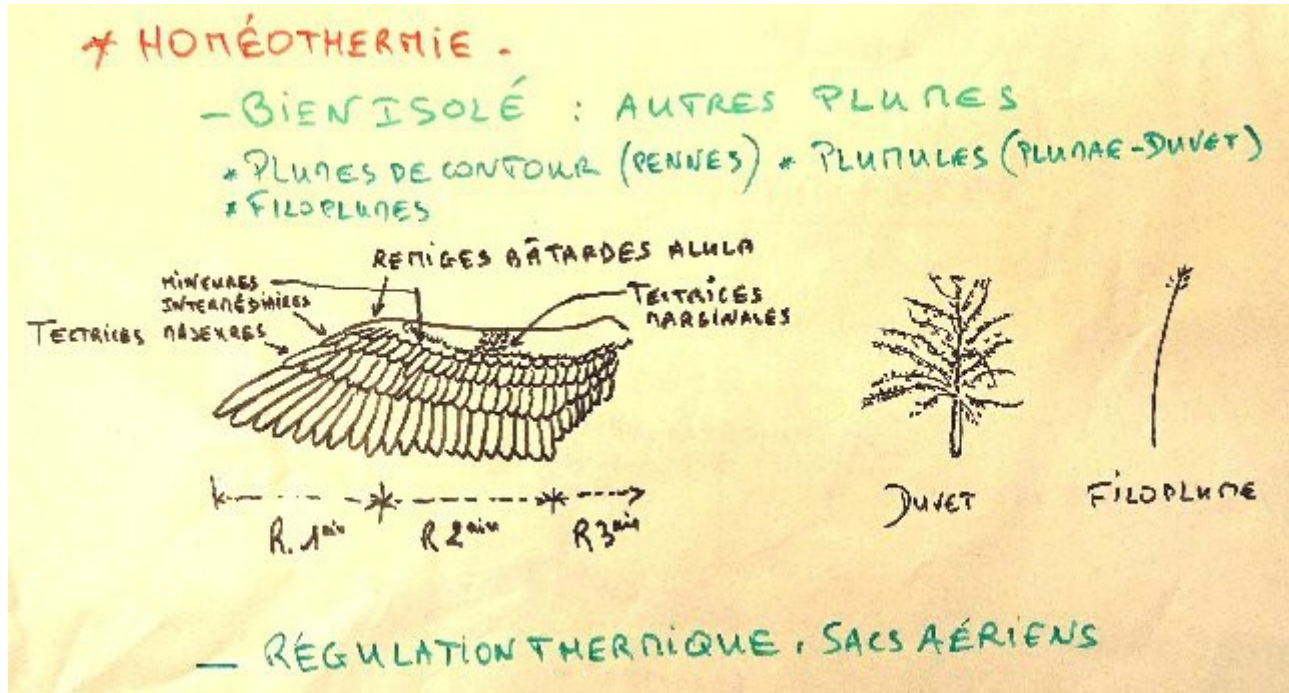 * HOMÉOTHERMIE.
- BIEN ISOLÉ : AUTRES PLUMES
* PLUMES DE CONTOUR (PENNES) * PLUMULES (PLUMAE-DUVET)
* FILOPLUMES
REMIGES BÂTARDES ALULA
MINEURES
INTERMÉDIAIRES
TECTRICES MAJEURES
TECTRICES
MARGINALES
R. 1aire R 2aire R 3aire
DUVET
FILOPLUME
- RÉGULATION THERMIQUE. SACS AÉRIENS